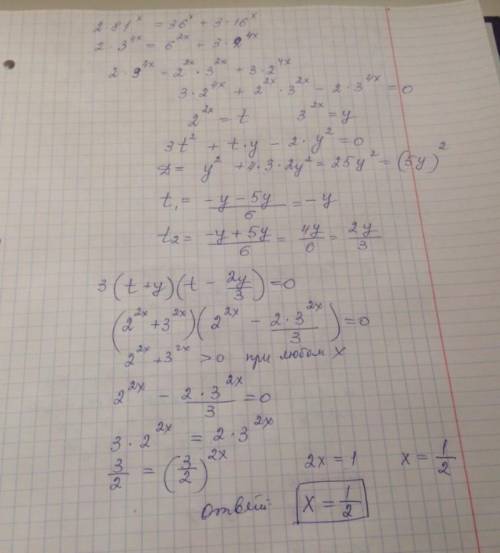 2·81ˣ = 36ˣ + 3·16ˣ
2·3⁴ˣ = 6²ˣ + 3·2⁴ˣ
2·9⁴ˣ - 2²ˣ·3²ˣ + 3·2⁴ˣ
3·2⁴ˣ + 2²ˣ·3²ˣ - 2·3⁴ˣ = 0
2²ˣ = t 3²ˣ = y
3t² + t·y - 2·y² = 0
D = y² + 4·3·2y² = 25y² = (5y)²
t₁ = (-y-5y)/6 = -y
t₂ = (-y+5y)/6 = 4y/6 = 2y/3
3(t+y)(t - 2y/3) = 0
(2²ˣ + 3²ˣ)(2²ˣ - 2·3²ˣ/3) = 0
2²ˣ + 3²ˣ > 0 при любом x
2²ˣ - 2·3²ˣ/3 = 0
3·2²ˣ = 2·3²ˣ
3/2 = (3/2)²ˣ 2x = 1 x = 1/2
ответ x = 1/2